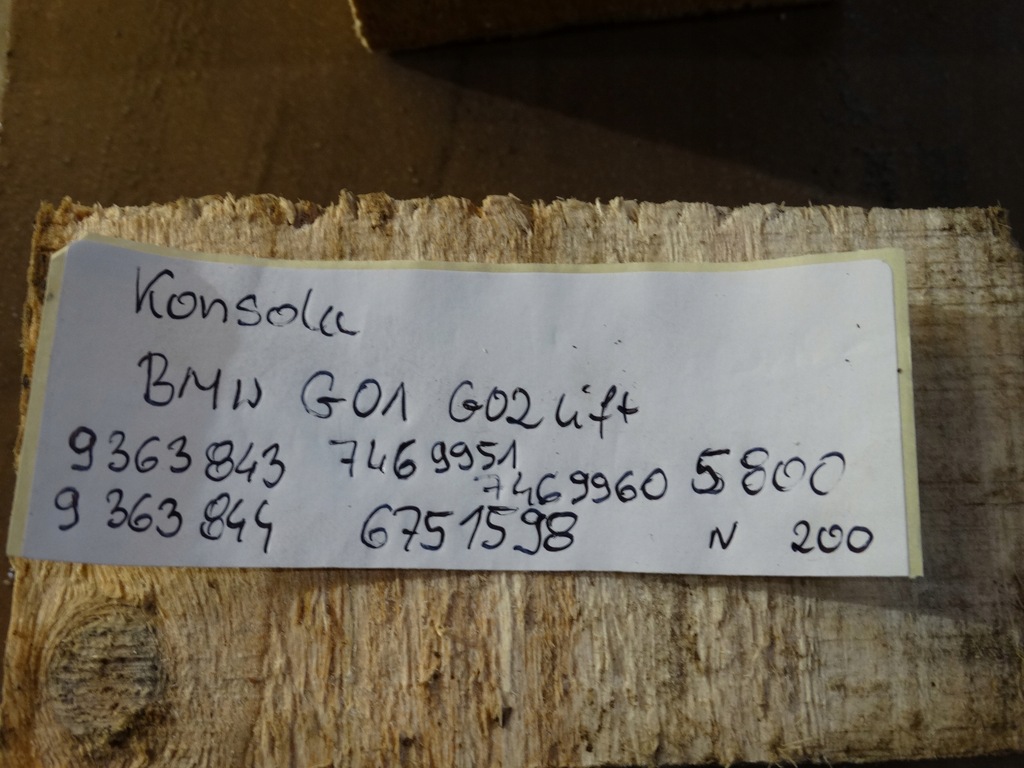 Konsola
BMW G01 G02 lift
9363843 7469951
7469960 5800
9363844 6751598 N 200